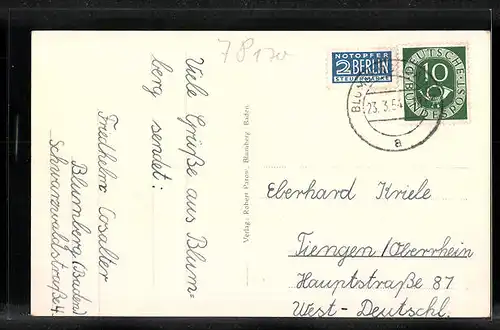 78170
Viele Grüße aus Blum=
berg sendet:
Friedhelm Cosalter
Blumberg (Baden)
Schwarzwaldstraße 4.
Verlag: Robert
Blumberg, Baden.
NOTOPFER
2 BERLIN
STEUERMARKE
DEUTSCHE
BUNDESPOST
10
23. 3. 54
a
Eberhard Kriele
Tiengen/Oberrhein
Hauptstraße 87
West-Deutschl.